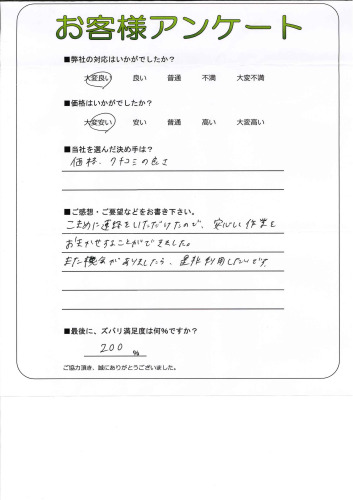 お客様アンケート
■弊社の対応はいかがでしたか?
大変良い 良い 普通 不満 大変不満
■価格はいかがでしたか?
大変安い 安い 普通 高い 大変高い
■当社を選んだ決め手は?
価格、クチコミの良さ
■ご感想・ご要望などをお書き下さい。
こまめに連絡をしていただけたので、安心して作業を
おまかせすることができました。
また機会がありましたら、是非利用したいです。
■最後に、ズバリ満足度は何%ですか?
200 %
ご協力頂き、誠にありがとうございました。